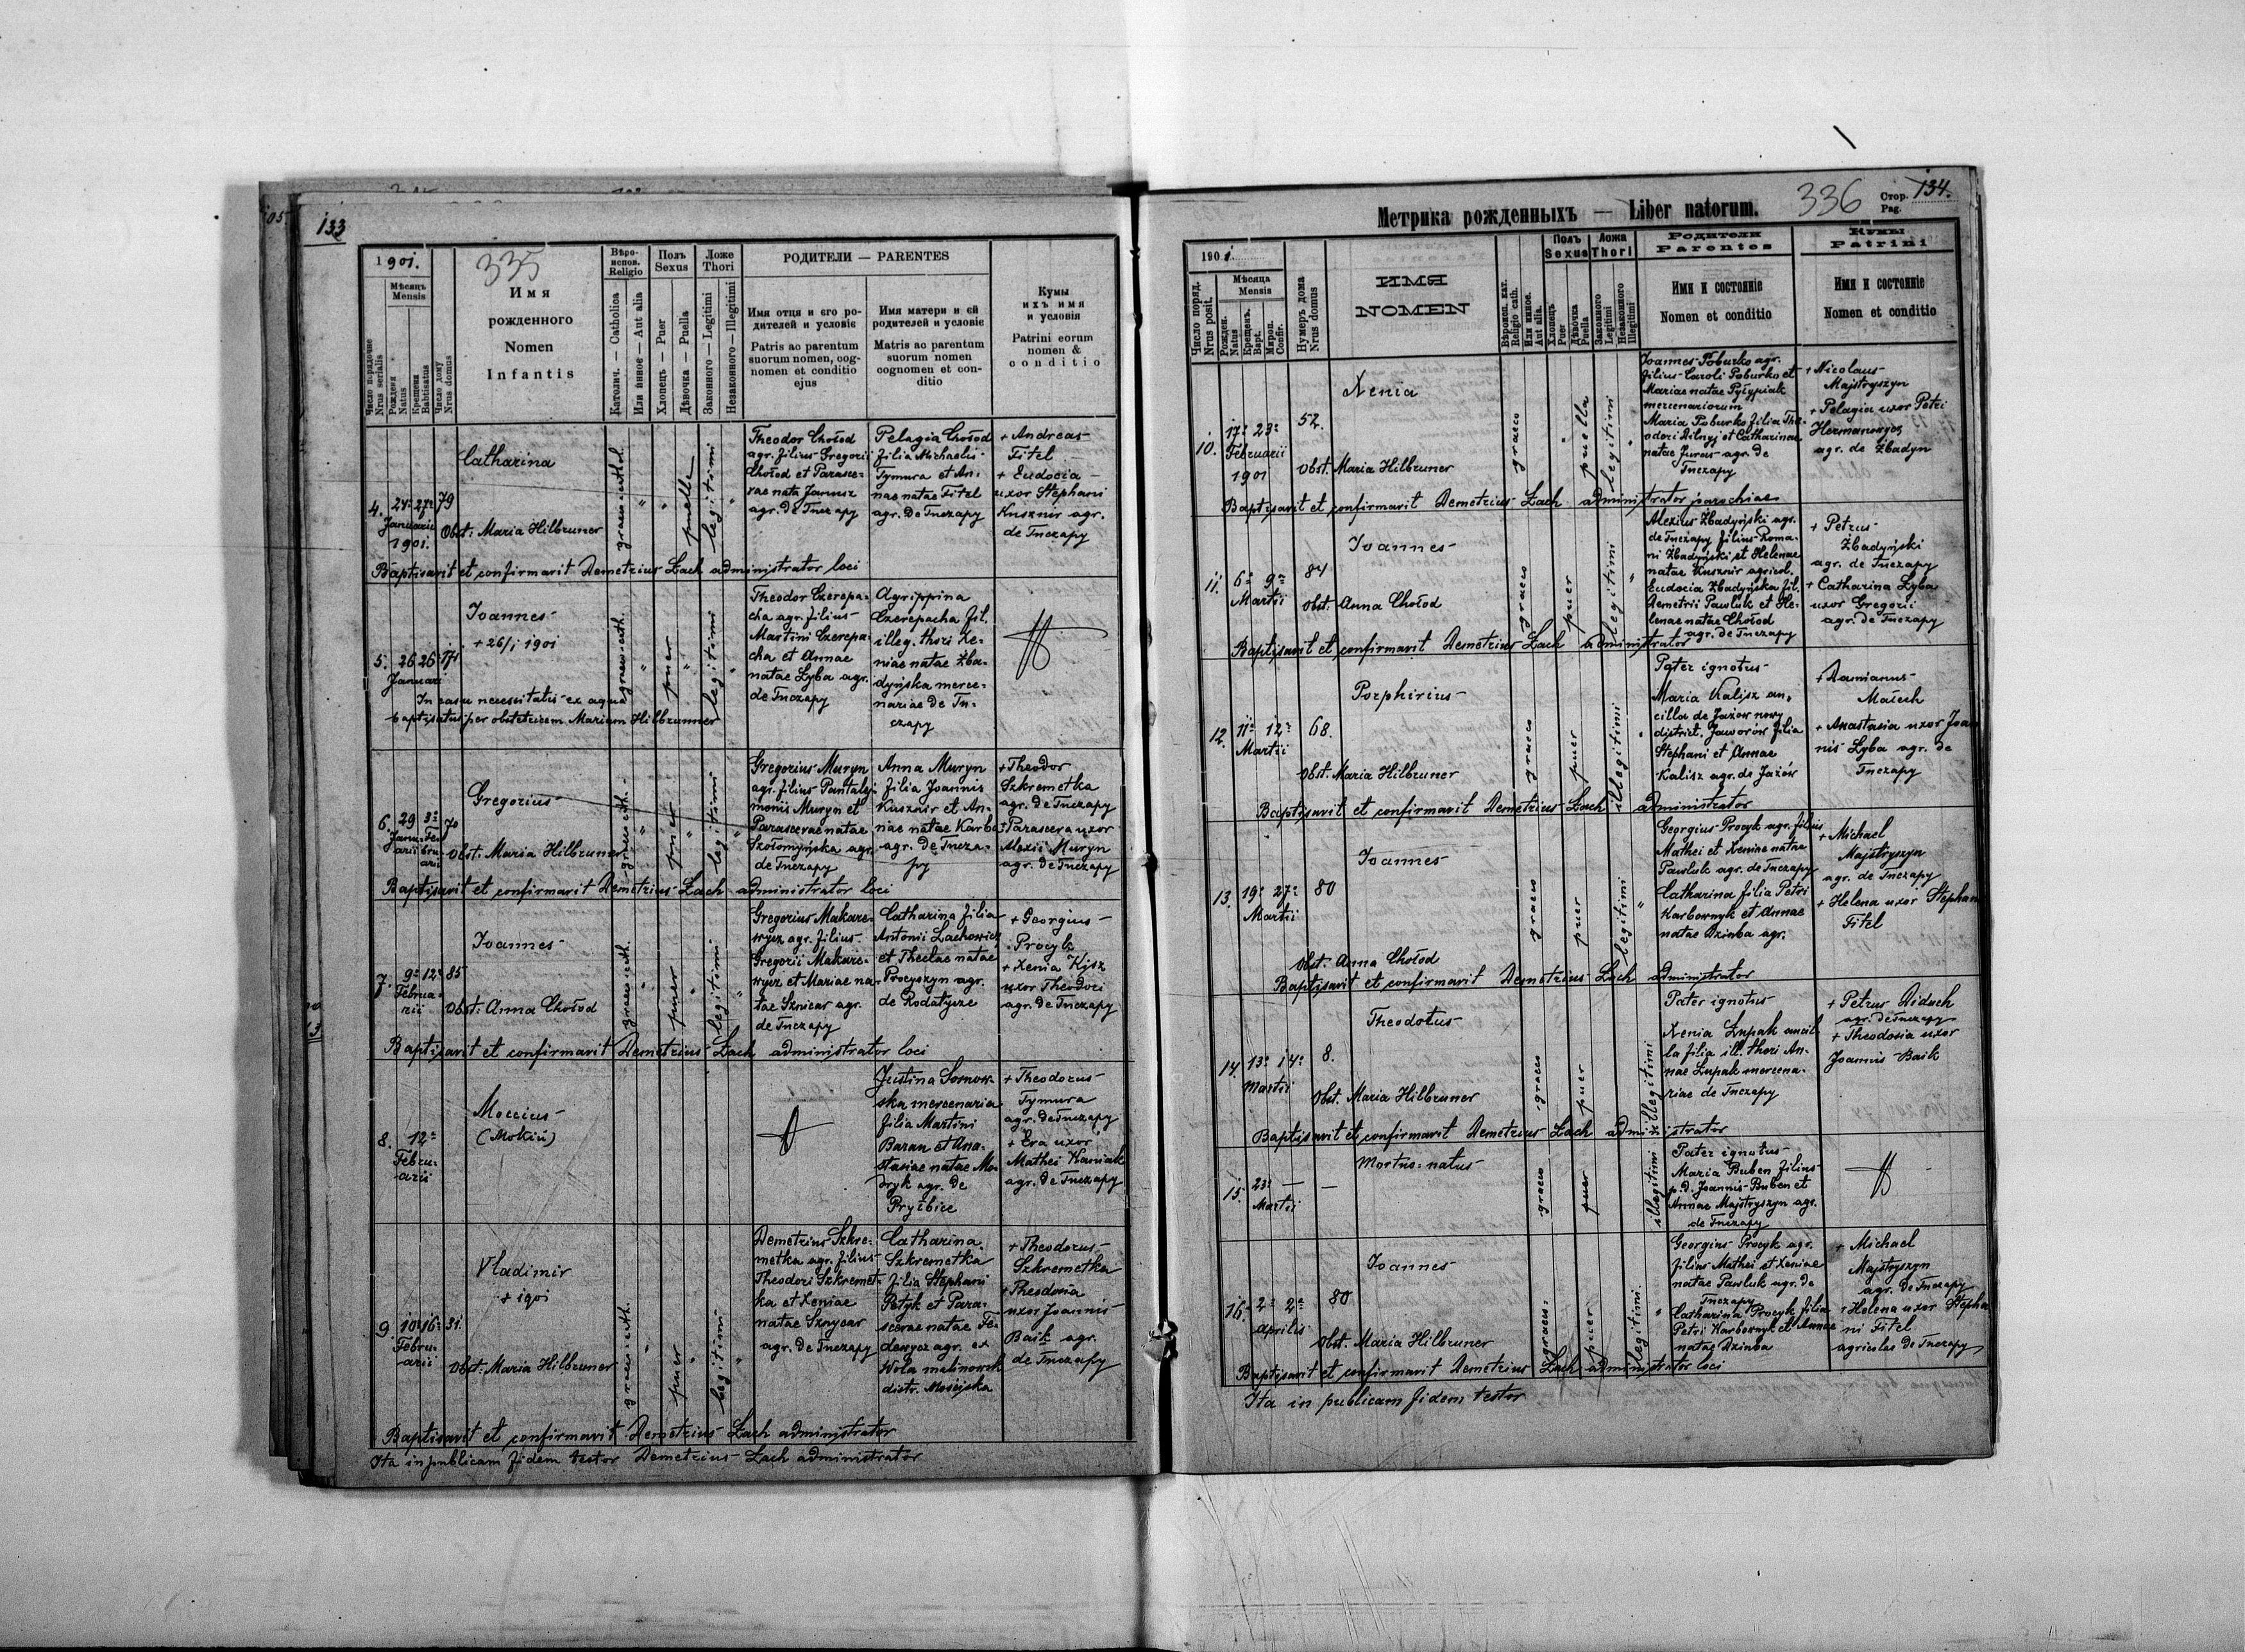 133
1901.
335
Мѣсяць
Mensis
Число порядочне
Nrus serialis
Рождени
Natus
Крещени
Babtisatus
Число дому
Nrus domus
Имя
рожденного
Nomen
Infantis
Вѣро-
испов.
Religio
Католич. — Catholica
Или инное — Aut alia
Полъ
Sexus
Хлопець — Puer
Дѣвочка — Puella
Ложе
Thori
Законного — Legitimi
Незаконного — Illegitimi
РОДИТЕЛИ — PARENTES
Имя отця и єго ро-
дителей и условіє
Patris ac parentum
suorum nomen, cog-
nomen et conditio
ejus
Имя матери и єй
родителей и условіє
Matris ac parentum
suorum nomen
cognomen et con-
ditio
Кумы
ихъ имя
и условія
Patrini eorum
nomen &
conditio
4.
24. 27. 79
Januarii
1901.
Catharina
Obst: Maria Hilbruner
puella
legitimi
Theodor Chołod
agr. filius Gregorii
Chołod et Parasce-
vae nata Janusz
agr. de Tuczapy
Pelagia Chołod
filia Michaelis
Tymura et An-
nae natae Fitel
agr. de Tuczapy
+ Andreas
Fitel
+ Eudocia
uxor Stephani
Kusznir agr.
de Tuczapy
Baptisavit et confirmavit Demetrius Łach administrator loci
5.
26 26
Januarii
Joannes
+ 26/1 1901
In casu necessitatis ex aqua
baptisatus per obstetricem Mariam Hilbrunner
graeco-cath.
puer
legitimi
Theodor Czerepa-
cha agr. filius
Martini Czerepa-
cha et Annae
natae Łyba agr.
de Tuczapy
Agrippina
Czerepacha fil.
illeg. thori Xe-
niae natae Żba-
dyńska merce-
nariae de Tu-
czapy
6.
29 3a 70
Janu- Fe-
arii bru-
arii
Gregorius
Obst. Maria Hilbruner
graeco-cath.
puer
legitimi
Gregorius Muryn
agr. filius Pantale-
monis Muryn et
Parascevae natae
Szołomyńska agr.
de Tuczapy
Anna Muryn
filia Joannis
Kusznir et An-
nae natae Karbo
agr. de Tucza-
py
+ Theodor
Szkremetka
agr. de Tuczapy
+ Parasceva uxor
Alexii Muryn
agr. de Tuczapy
Baptisavit et confirmavit Demetrius Łach administrator loci
7.
9a 12a 85
Februa-
rii
Joannes
Obst: Anna Chołod
graeco-cath.
puer
legitimi
Gregorius Makare-
wycz agr. filius
Gregorii Makare-
wycz et Mariae na-
tae Sznicar agr.
de Tuczapy
Catharina filia
Antonii Lachowicz
et Theclae natae
Procyszyn agr.
de Rodatycze
+ Georgius
Procyk
+ Xenia Kysz
uxor Theodori
agr. de Tuczapy
Baptisavit et confirmavit Demetrius Łach administrator loci
8.
12a
Febru-
arii
Moccius
(Mokiй)
Justina Sosnow-
ska mercenaria
filia Martini
Baran et Ana-
stasiae natae Mo-
dryk agr. de
Pryłbice
+ Theodorus
Tymura
agr. de Tuczapy
+ Eva uxor
Mathei Kaniak
agr. de Tuczapy
9.
10a 16a 31.
Febru-
arii
Vladimir
+ 1901
Obst: Maria Hilbruner
graeco-cath.
puer
legitimi
Demetrius Szkre-
metka agr. filius
Theodori Szkremet-
ka et Xeniae
natae Sznycar
agr. de Tuczapy
Catharina
Szkremetka
filia Stephani
Petyk et Para-
scevae natae Fe-
dewycz agr. ex
Wola malinowsk
distr. Mościska
+ Theodorus
Szkremetka
+ Theodosia
uxor Joannis
Baik agr.
de Tuczapy
Baptisavit et confirmavit Demetrius Łach administrator
Ita in publicam fidem testor Demetrius Łach administrator
Метрика рожденныхъ — Liber natorum.
336
Стор.
Pag.
134.
1901.
Число поряд.
Nrus posit.
Мѣсяца
Mensis
Рожден.
Natus
Крещенъ.
Bapt.
Мирoп.
Confir.
Нумеръ дома
Nrus domus
ИМЯ
NOMEN
Вѣроисп. кат.
Religio cath.
Или инное.
Aut alia.
Полъ
Sexus
Хлопецъ
Puer
Дѣвочка
Puella
Ложа
Thori
Законного
Legitimi
Незаконного
Illegitimi
Родители
Parentes
Имя и состояніе
Nomen et conditio
Кумы
Patrini
Имя и состояніе
Nomen et conditio
10.
17a 23a
Februarii
1901
52.
Xenia
Obst. Maria Hilbruner
graeco
puella
legitimi
Joannes Poburko agr.
filius Caroli Poburko et
Mariae natae Pyłypiak
mercenariorum
Maria Poburko filia The-
odori Dilnyj et Catharinae
natae Juras agr. de
Tuczapy
+ Nicolaus
Majstryszyn
+ Pelagia uxor Petri
Hermanowycz
agr. de Żbadyn
Baptisavit et confirmavit Demetrius Łach administrator parochiae
11.
6a 9a
Martii
84
Joannes
Obst. Anna Chołod
graeco
puer
legitimi
Alexius Żbadyński agr.
de Tuczapy filius Roma-
ni Żbadyński et Helenae
natae Kusznir agricol.
Eudocia Żbadyńska fil.
Demetrii Pawluk et He-
lenae natae Chołod
agr. de Tuczapy
+ Petrus
Żbadyński
agr. de Tuczapy
+ Catharina Łyba
uxor Gregorii
agr. de Tuczapy
Baptisavit et confirmavit Demetrius Łach administrator
12.
11a 12a
Martii
68.
Porphirius
Obst. Maria Hilbruner
graeco
puer
illegitimi
Pater ignotus
Maria Kalisz an-
cilla de Jażow nowy
district. Jaworów filia
Stephani et Annae
Kalisz agr. de Jażów
+ Damianus
Maćech
+ Anastasia uxor Joan
nis Łyba agr. de
Tuczapy
Baptisavit et confirmavit Demetrius Łach administrator
13.
19a 27a
Martii
80
Joannes
Obst. Anna Chołod
graeco
puer
legitimi
Georgius Procyk agr. filius
Mathei et Xeniae natae
Pawluk agr. de Tuczapy
Catharina filia Petri
Karbownyk et Annae
natae Dziuba agr.
+ Michael
Majstryszyn
agr. de Tuczapy
+ Helena uxor Stephan
Fitel
Baptisavit et confirmavit Demetrius Łach administrator
14.
13a 14a
Martii
8.
Theodotus
Obst. Maria Hilbruner
graeco
puer
illegitimi
Pater ignotus
Xenia Łupak ancil-
la filia ill. thori An-
nae Łupak mercena-
riae de Tuczapy
+ Petrus Diduch
agr. de Tuczapy
+ Theodosia uxor
Joannis Baik
Baptisavit et confirmavit Demetrius Łach administrator
15.
23a — —
Martii
Mortuo-natus
graeco
puer
illegitimi
Pater ignotus
Maria Buben filius
p.d. Joannis Buben et
Annae Majstryszyn agr.
de Tuczapy
16.
2a 2a
Aprilis
80
Joannes
Obst. Maria Hilbruner
graeco-
puer
legitimi
Georgius Procyk agr.
filius Mathei et Xeniae
natae Pawluk agr. de
Tuczapy
Catharina Procyk filia
Petri Karbownyk et Annae
natae Dziuba
+ Michael
Majstryszyn
agr. de Tuczapy
+ Helena uxor Stepha
ni Fitel
agricolae de Tuczapy
Baptisavit et confirmavit Demetrius Łach administrator loci
Ita in publicam fidem testor